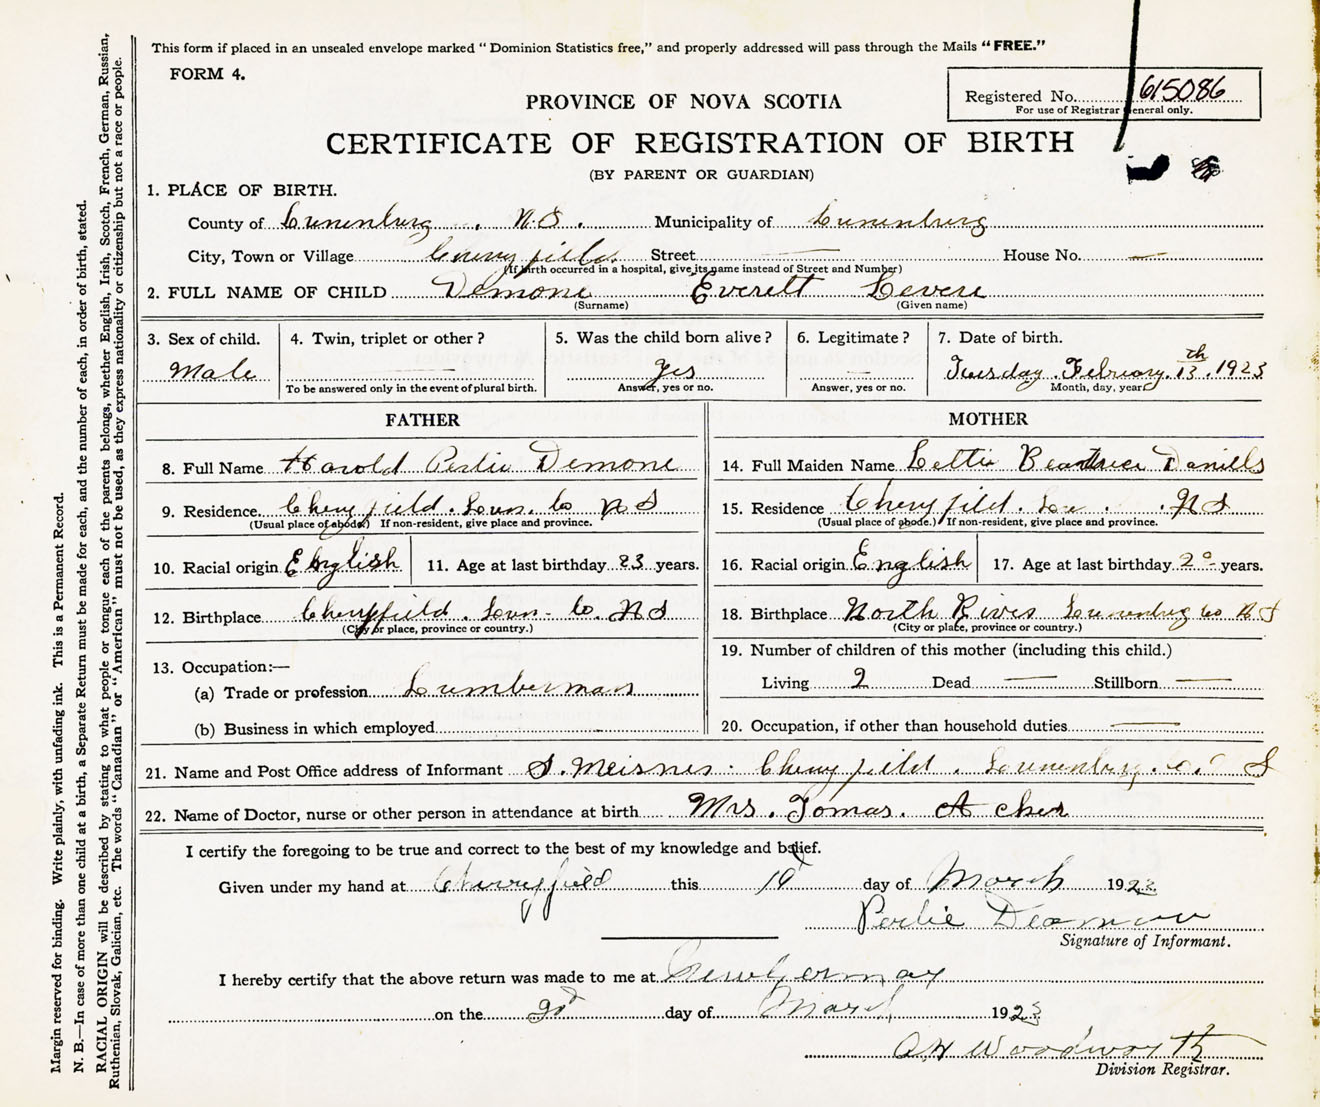 This form if placed in an unsealed envelope marked "Dominion Statistics free," and properly addressed will pass through the Mails "FREE."
FORM 4.
Registered No. 615086
For use of Registrar General only.
PROVINCE OF NOVA SCOTIA
CERTIFICATE OF REGISTRATION OF BIRTH
(BY PARENT OR GUARDIAN)
1. PLACE OF BIRTH.
County of Lunenburg. N.S. Municipality of Lunenburg
City, Town or Village Cherryfield Street — House No. —
(If birth occurred in a hospital, give its name instead of Street and Number)
2. FULL NAME OF CHILD Demone Everett Levere
(Surname) (Given name)
3. Sex of child. 4. Twin, triplet or other? 5. Was the child born alive? 6. Legitimate? 7. Date of birth.
Male — Yes — Tuesday. February. 13th. 1923
To be answered only in the event of plural birth. Answer, yes or no. Answer, yes or no. Month, day, year
FATHER
8. Full Name Harold Perlie Demone
9. Residence. Cherryfield. Lun. Co NS
(Usual place of abode.) If non-resident, give place and province.
10. Racial origin English 11. Age at last birthday 23 years.
12. Birthplace Cherryfield. Lun. Co. NS
(City or place, province or country.)
13. Occupation:—
(a) Trade or profession Lumberman
(b) Business in which employed
MOTHER
14. Full Maiden Name Lettie Beatrice Daniells
15. Residence Cherryfield. Lun. NS
(Usual place of abode.) If non-resident, give place and province.
16. Racial origin English 17. Age at last birthday 20 years.
18. Birthplace North River Lunenburg Co NS
(City or place, province or country.)
19. Number of children of this mother (including this child.)
Living 2 Dead — Stillborn —
20. Occupation, if other than household duties —
21. Name and Post Office address of Informant S. Meisner. Cherryfield. Lunenburg. S
22. Name of Doctor, nurse or other person in attendance at birth Mrs. Tomas. Acker
I certify the foregoing to be true and correct to the best of my knowledge and belief.
Given under my hand at Cherryfield this day of March 1923
Perlie
Signature of Informant.
I hereby certify that the above return was made to me at New Germany
on the day of March 1923
Woodworth
Division Registrar.
Margin reserved for binding. Write plainly, with unfading ink. This is a Permanent Record.
N. B.—In case of more than one child at a birth, a Separate Return must be made for each, and the number of each, in order of birth, stated.
RACIAL ORIGIN will be described by stating to what people or tongue each of the parents belongs, whether English, Irish, Scotch, French, German, Russian,
Ruthenian, Slovak, Galician, etc. The words "Canadian" or "American" must not be used, as they express nationality or citizenship but not a race or people.